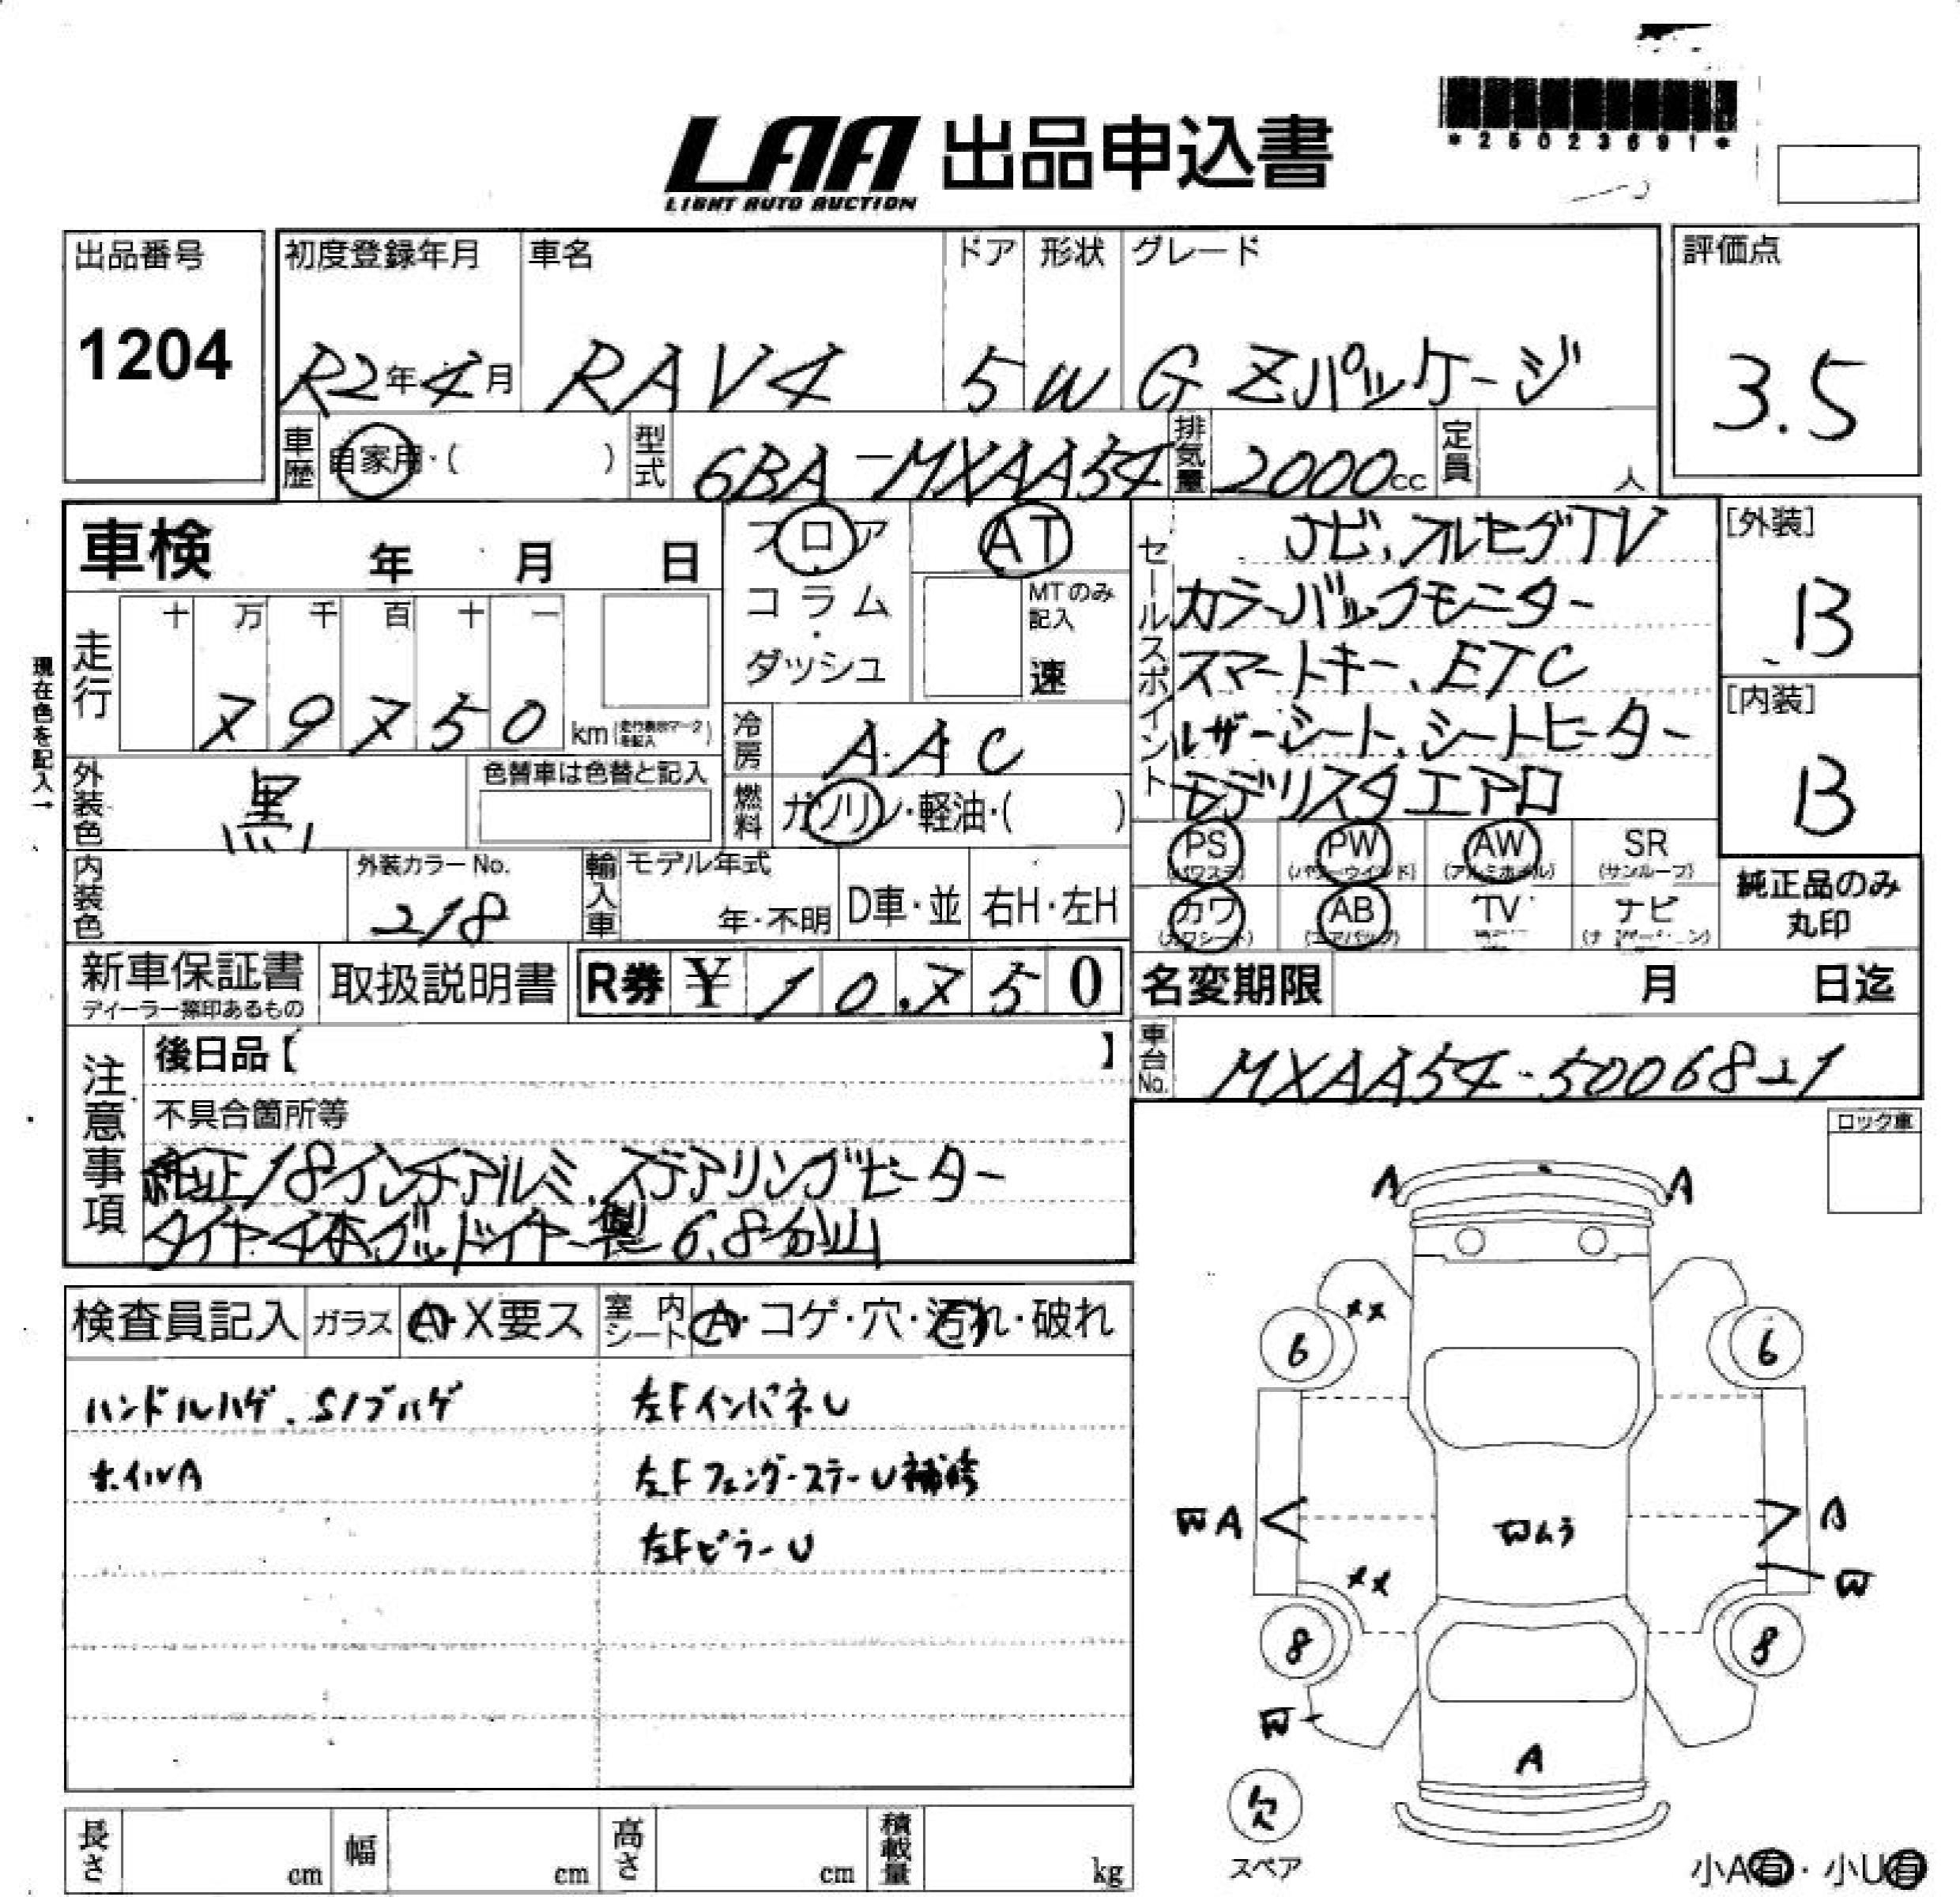 *25023691*
LAA 出品申込書
LIGHT AUTO AUCTION
出品番号
1204
初度登録年月
R2年4月
車名
RAV4
ドア
5
形状
W
グレード
G Zパッケージ
評価点
3.5
車歴
自家用・( )
型式
6BA-MXAA54
排気量
2000cc
定員
人
車検 年 月 日
フロア
コラム
・
ダッシュ
AT
MTのみ
記入
速
セールスポイント
ナビ、フルセグTV
カラーバックモニター
スマートキー、ETC
レザーシート、シートヒーター
モデリスタエアロ
[外装]
B
[内装]
B
現在色を記入→
走行
十 万 千 百 十 一
7 9 7 5 0 km
冷房
AAC
外装色
黒
色替車は色替と記入
燃料
ガソリン・軽油・( )
内装色
外装カラーNo.
218
輸入車
モデル年式
年・不明
D車・並
右H・左H
PS
(パワステ)
PW
(パワーウインド)
AW
(アルミホイル)
SR
(サンルーフ)
カワ
(カワシート)
AB
(エアバッグ)
TV
ナビ
純正品のみ
丸印
新車保証書
ディーラー捺印あるもの
取扱説明書
R券 ¥ 10.750
名変期限 月 日迄
車台No.
MXAA54-5006821
注意事項
後日品【 】
不具合箇所等
純正18インチアルミ、ステアリングヒーター
タイヤ4本グッドイヤー製 6.8分山
ロック車
検査員記入
ガラス
A・X要ス
室内
シート
A・コゲ・穴・汚れ・破れ
ハンドルハゲ、Sノブハゲ
ホイルA
左FインパネU
左FフェンダーステーU補修
左FピラーU
A A
XX
6 6
WA A
Wムラ
XX
W
8 8
W
A
欠
スペア
小A有・小U有
長さ cm
幅 cm
高さ cm
積載量 kg